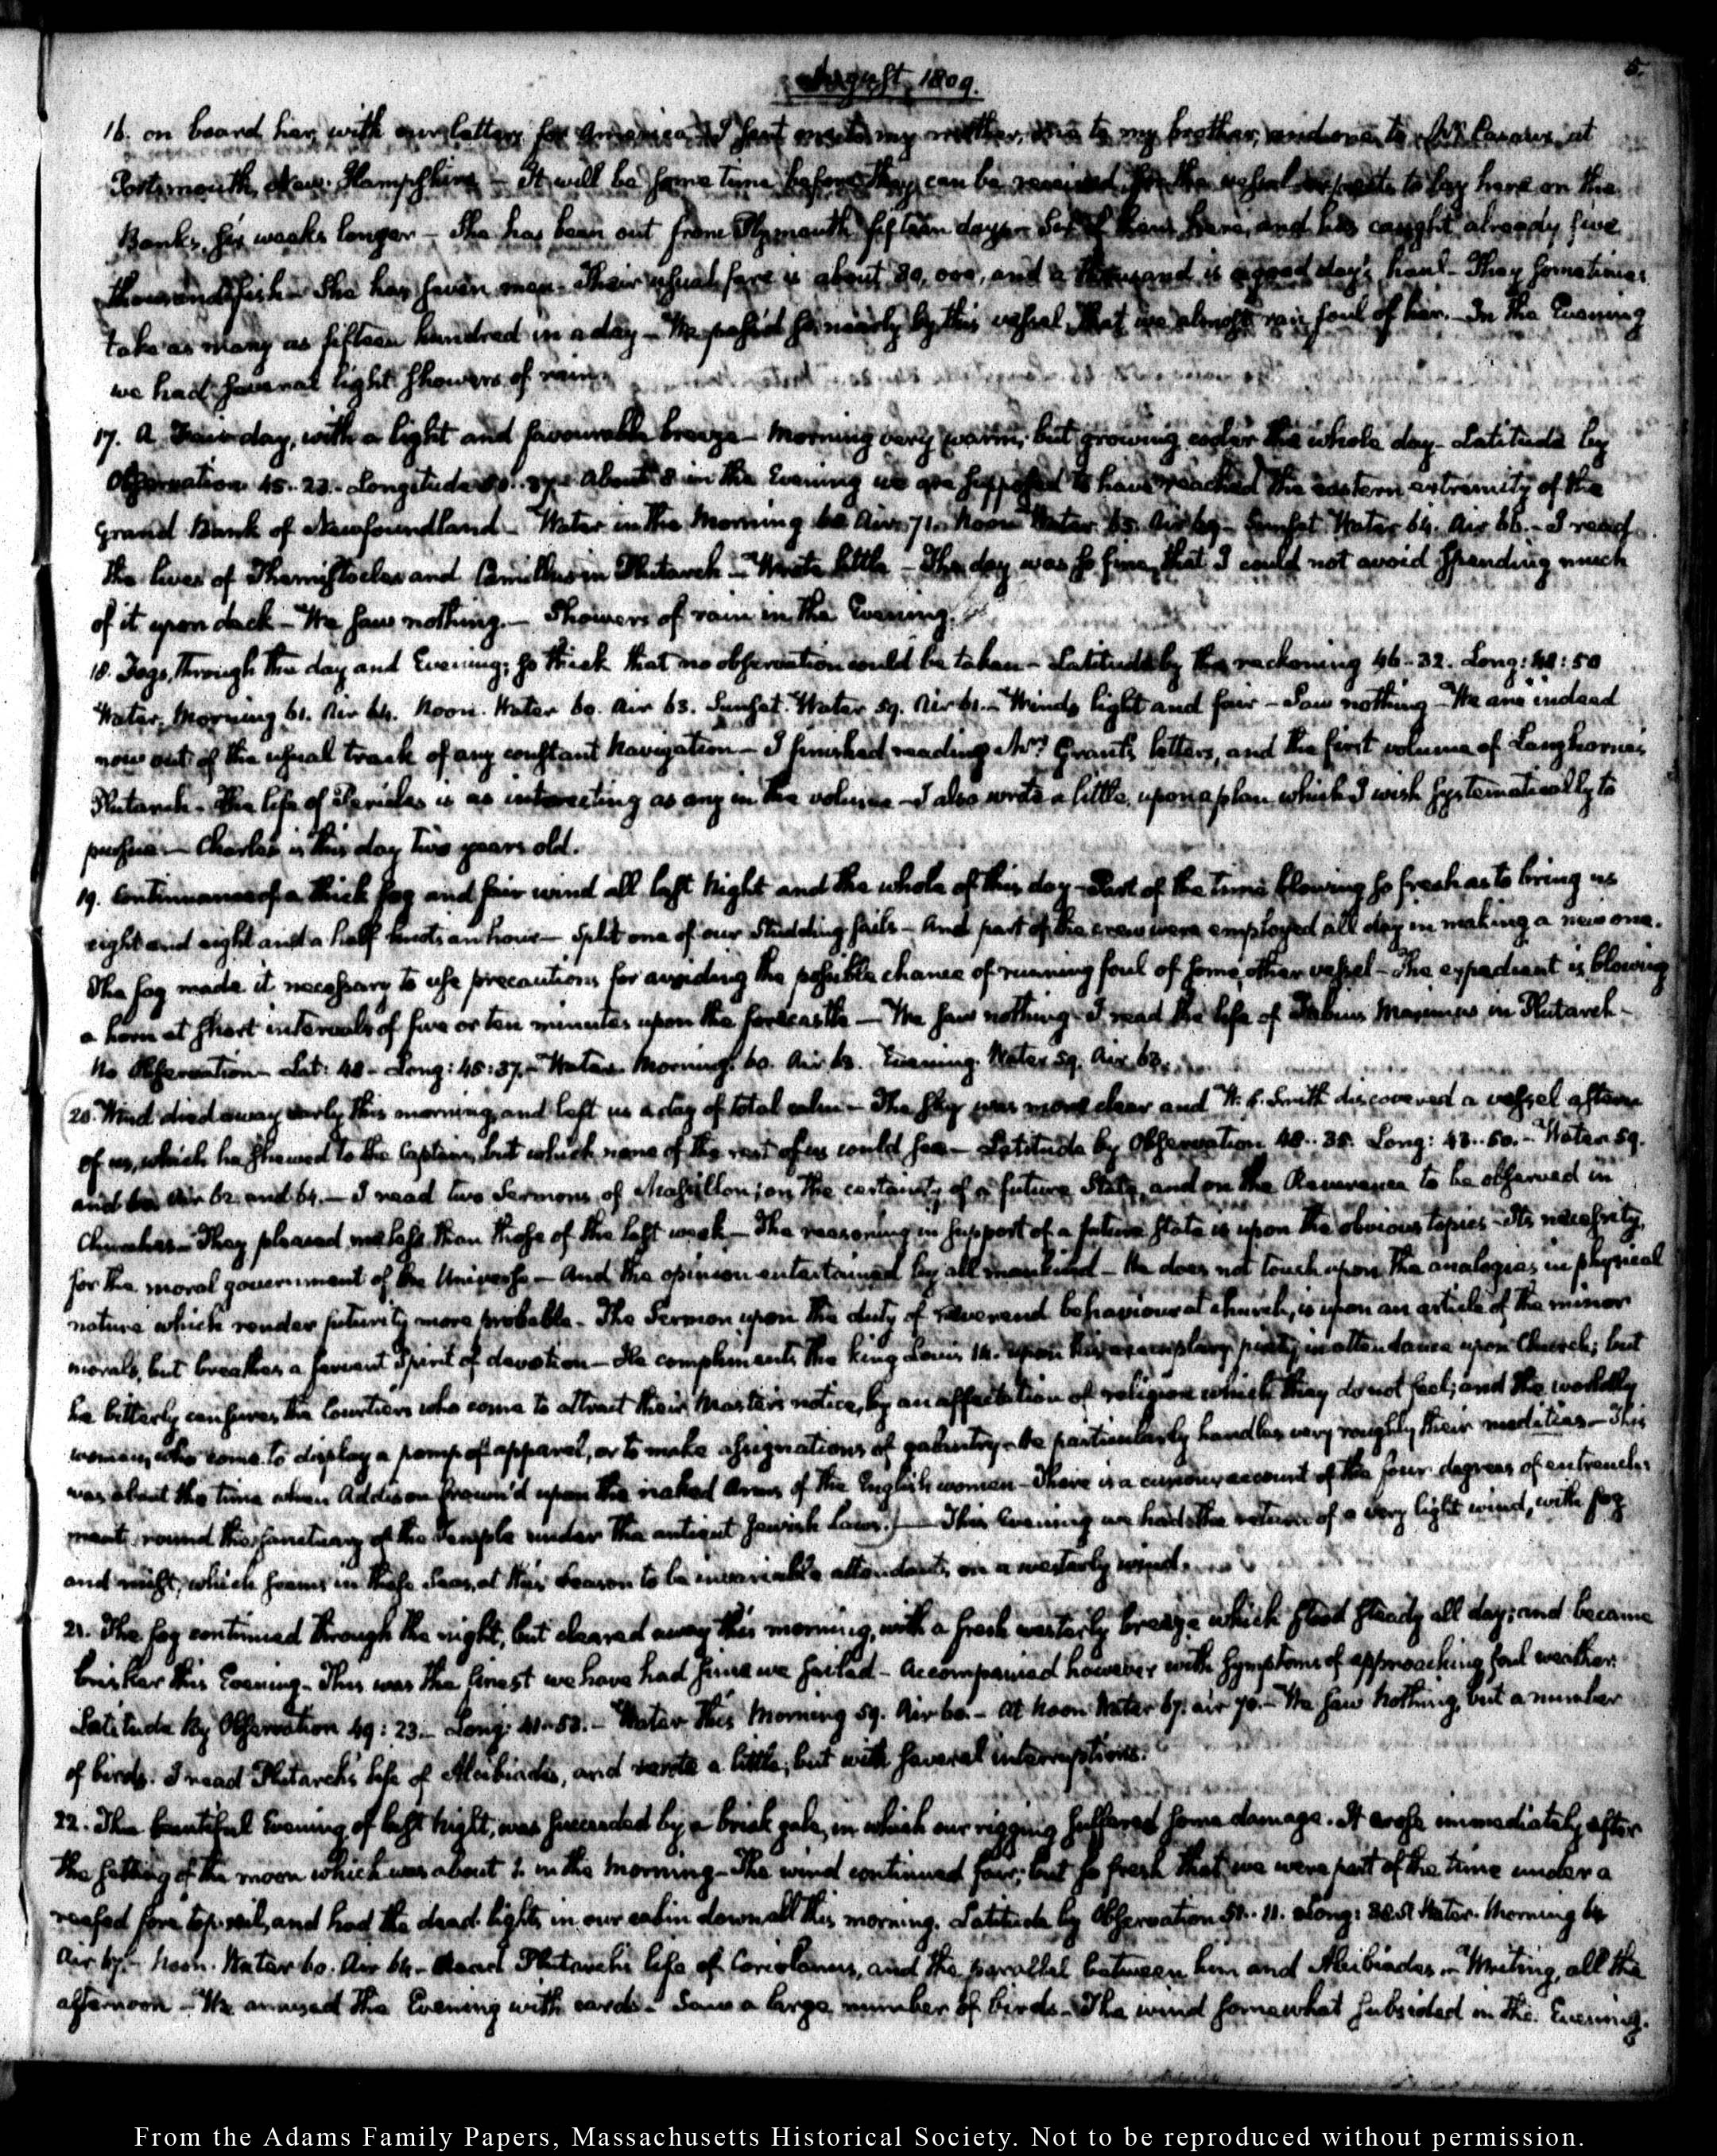 August, 1809.
5.
16. on board her, with our letters for America. I sent one to my mother, one to my brother, and one to at
Portsmouth, New-Hampshire — It will be some time before they can be received, for the vessel expects to lay here on the
Banks, six weeks longer — She has been out from Plymouth fifteen days — Six of them here, and has caught already five
thousand fish — She has seven men — Their usual fare is about 30,000, and a thousand is a good day's haul — They sometimes
take as many as fifteen hundred in a day — We pass'd so nearly by this vessel, that we almost ran foul of her. — In the Evening
we had several light showers of rain.
17. A Fair day, with a light and favourable breeze — Morning very warm, but growing cooler the whole day — Latitude by
Observation 45–23. Longitude About 8 in the Evening we are supposed to have reached the eastern extremity of the
Grand Bank of Newfoundland — Water in the Morning Air 71. Noon Water 65. Air 69 — Sunset Water 64. Air 66. — I read
the lives of Themistocles and Camillus in Plutarch — Wrote little — The day was so fine, that I could not avoid spending much
of it upon deck — We saw nothing. — Showers of rain in the Evening.
18. Fogs, through the day and Evening; so thick that no observation could be taken — Latitude by the reckoning 46–32. Long: 48:50
Water, Morning 61. Air 64. Noon. Water 60. Air 63. Sunset. Water 59. Air 61. — Winds light and fair — Saw nothing — We are indeed
now out of the usual track of any constant Navigation — I finished reading Mrs. Grant's letters, and the first volume of Langhorne's
Plutarch — The life of Pericles is as interesting as any in the volume — I also wrote a little, upon a plan which I wish systematically to
pursue — Charles is this day two years old.
19. Continuance of a thick fog and fair wind all last Night and the whole of this day — Part of the time blowing so fresh as to bring us
eight and eight and a half knots an hour — Split one of our Studding sails — And part of the crew were employed all day in making a new one.
The fog made it necessary to use precautions for avoiding the possible chance of running foul of some other vessel — The expedient is blowing
a horn at short intervals of five or ten minutes upon the forecastle — We saw nothing — I read the life of Fabius Maximus in Plutarch —
No Observation — Lat: 48 — Long: 45:37. — Water. Morning. 60. Air 63. Evening. Water 59. Air 63.
20. Wind died away early this morning, and left us a day of total calm — The sky was more clear and W. S. Smith discovered a vessel astern
of us, which he shewed to the Captain, but which none of the rest of us could see — Latitude by Observation 48..35. Long: 43..50. — Water 59.
and 60 Air 62 and 64. — I read two Sermons of Massillon; on the certainty of a future State, and on the Reverence to be observed in
Churches — They pleased me less than those of the last week — The reasoning in support of a future state is upon the obvious topics — Its necessity,
for the moral government of the Universe — And the opinion entertained by all mankind — He does not touch upon the analogies in physical
nature which render futurity more probable — The Sermon upon the duty of reverend behaviour at church, is upon an article of the minor
morals, but breathes a fervent Spirit of devotion — He compliments the king Louis 14. upon his exemplary piety in attendance upon Church; but
he bitterly censures the Courtiers who come to attract their Master's notice, by an affectation of religion which they do not feel; and the worldly
women, who come to display a pomp of apparel, or to make assignations of gallantry — He particularly handles very roughly their nudities — This
was about the time when Addison frown'd upon the naked Arms of the English women — There is a curious account of the four degrees of entrench-
ment round the sanctuary of the Temple under the antient Jewish Laws.) — This Evening we had the return of a very light wind, with fog
and mist, which seems in these Seas, at this Season to be invariable attendants on a westerly wind.
21. The fog continued through the night, but cleared away this morning, with a fresh westerly breeze which stood steady all day; and became
brisker this Evening — This was the finest we have had since we sailed — Accompanied however with symptoms of approaching foul weather.
Latitude by Observation 49:23. — Long: 41–53. — Water this Morning 59. Air 60. — At Noon Water 67. air 70. — We saw nothing, but a number
of birds. I read Plutarch's life of Alcibiades, and wrote a little; but with several interruptions.
22. The beautiful Evening of last Night, was succeeded by a brisk gale, in which our rigging suffered some damage. It arose immediately after
the setting of the moon which was about 2 in the Morning — The wind continued fair; but so fresh that we were part of the time under a
reefed fore top-sail, and had the dead lights in our cabin down all this morning. Latitude by Observation 51..11. Long: Water. Morning 64
Air 67. — Noon. Water 60. Air 64 — Read Plutarch's life of Coriolanus, and the parallel between him and Alcibiades. — Writing, all the
afternoon — We amused the Evening with cards — Saw a large number of birds — The wind somewhat subsided in the Evening.
From the Adams Family Papers, Massachusetts Historical Society. Not to be reproduced without permission.